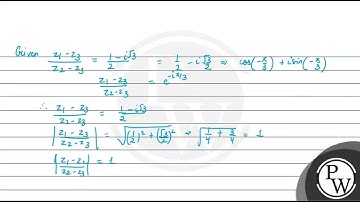 Given z₁-z₃/z₂-z₃ = 1-i√3/2 = 1/2 - i√3/2 ⇒ cos(-π/3) + i sin(-π/3)
z₁-z₃/z₂-z₃ = e^-iπ/3
∴ z₁-z₃/z₂-z₃ = 1-i√3/2
|z₁-z₃/z₂-z₃| = √(1/2)²+(√3/2)² ⇒ √1/4 + 3/4 = 1
|z₁-z₃/z₂-z₃| = 1
P
W